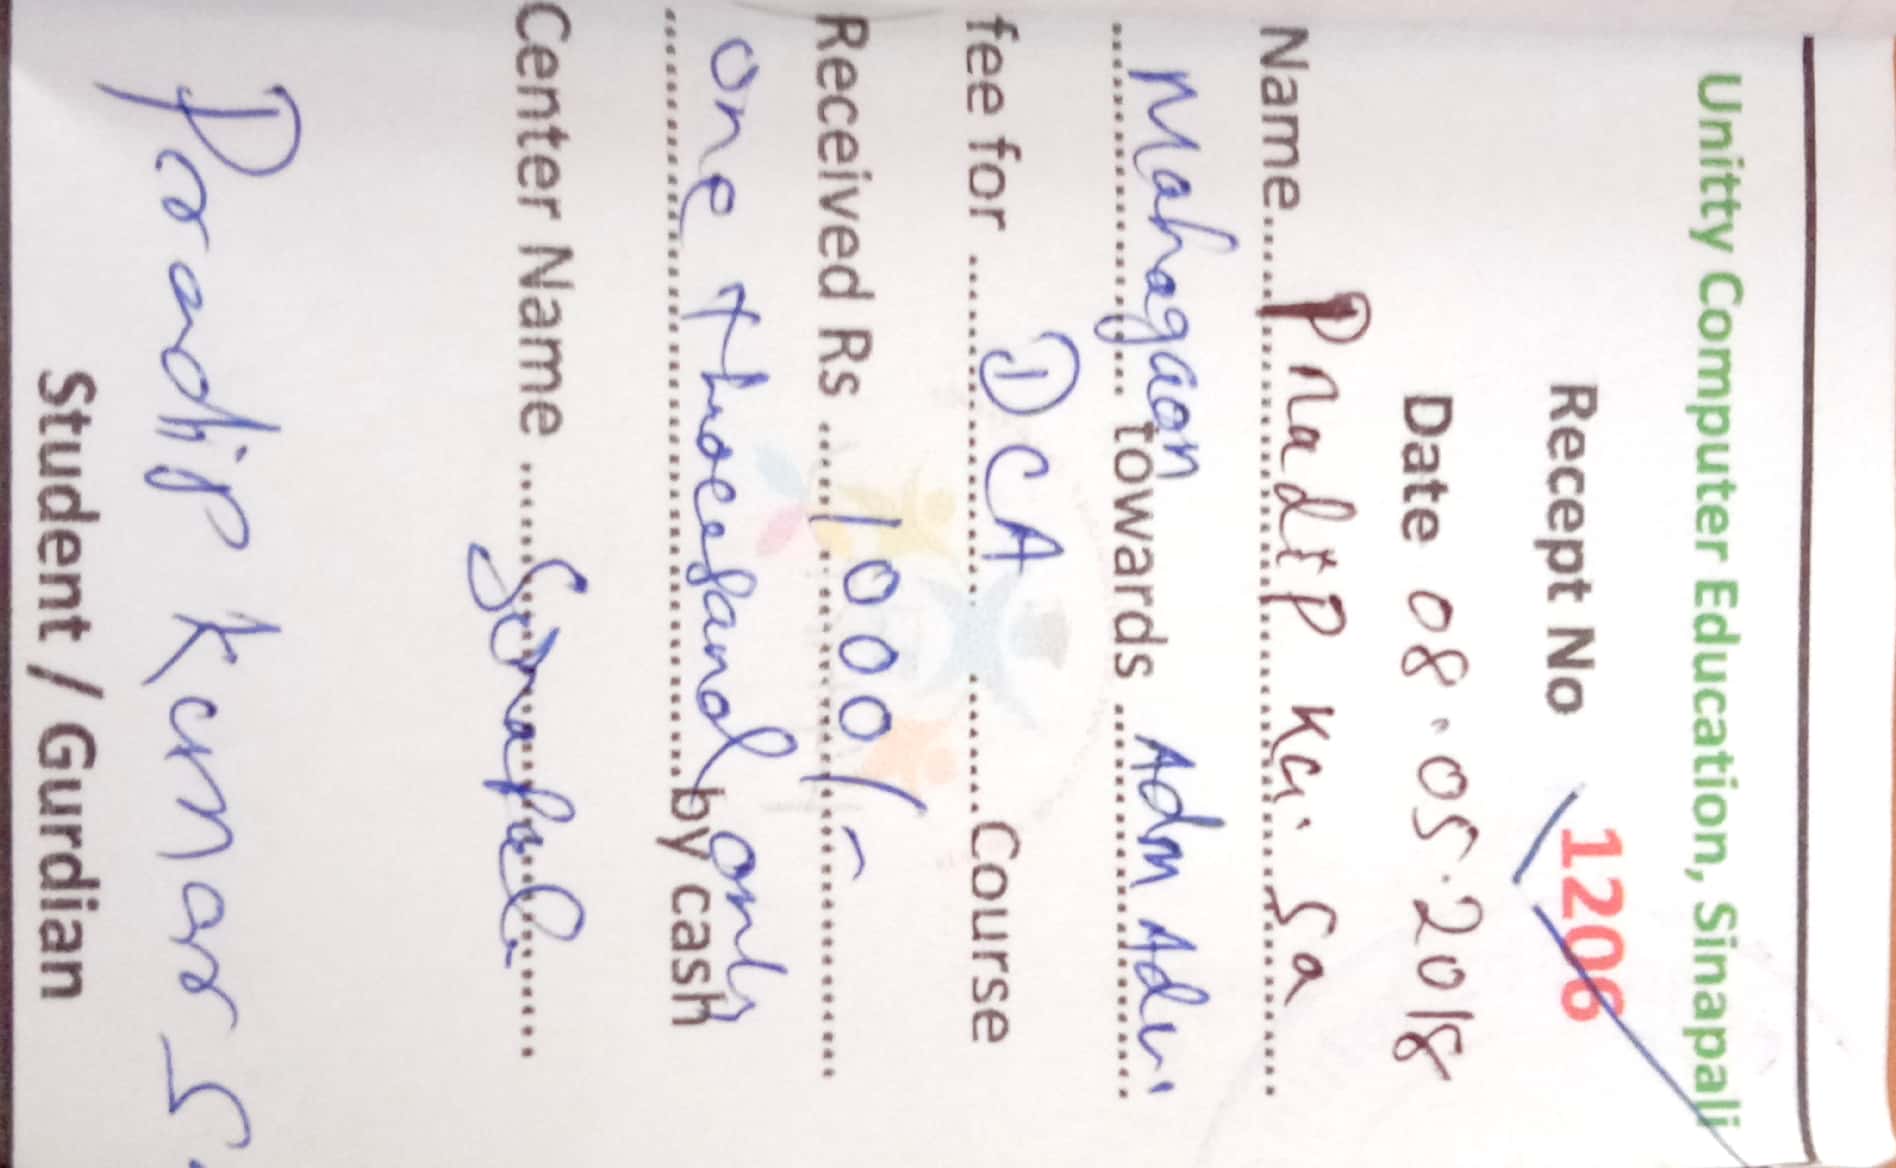 Unitty Computer Education, Sinapali
Recept No 1206
Date 08.05.2018
Name Pradip Ku. Sa
Mahagaon towards Adm Adv.
fee for DCA Course
Received Rs 1000/-
one thousand only by cash
Center Name Sinapali
Pradip Kumar S
Student / Gurdian